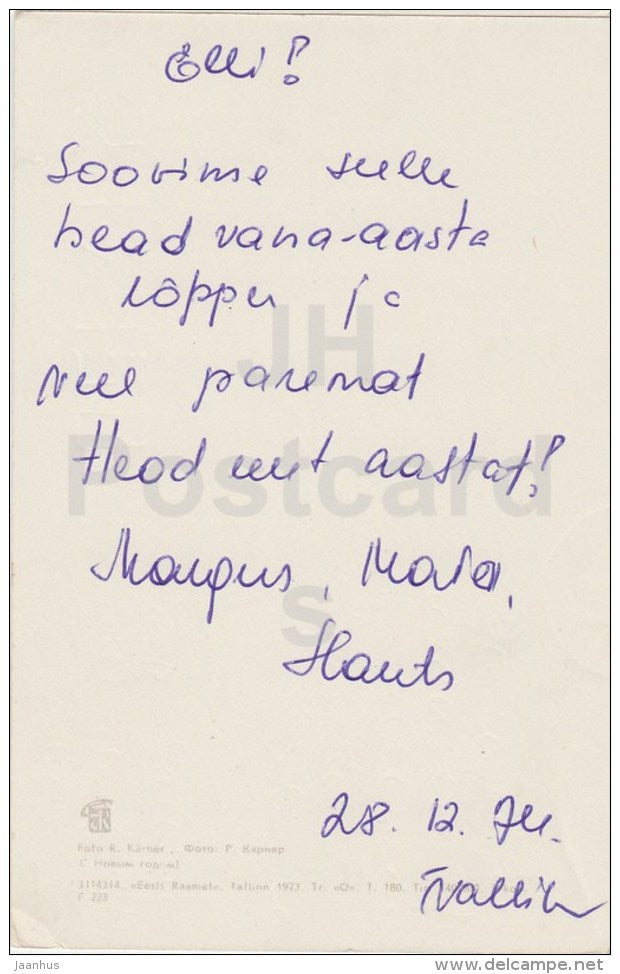 Elli!
Soovime sulle
head vana-aasta
lõppu ja
veel paremat
Head uut aastat!
Margus, Maia,
Hants
28. 12. 74.
Tallinn
JH
Postcard
s
Foto R. Kärner. Фото: Р. Кярнер
С Новым годом!
3114314. «Eesti Raamat», Tallinn 1973. Tr. «O». T. 180.
Г 223
Jaanhus
www.delcampe.net